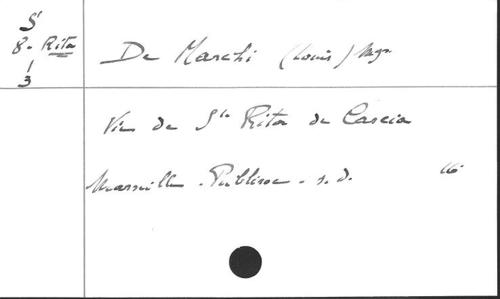 S'
8 - Rita
1
3
De Marchi (Louis) Mgr.
Vie de Ste Rita de Cascia
Marseille - Publiroc - s. d. 16°